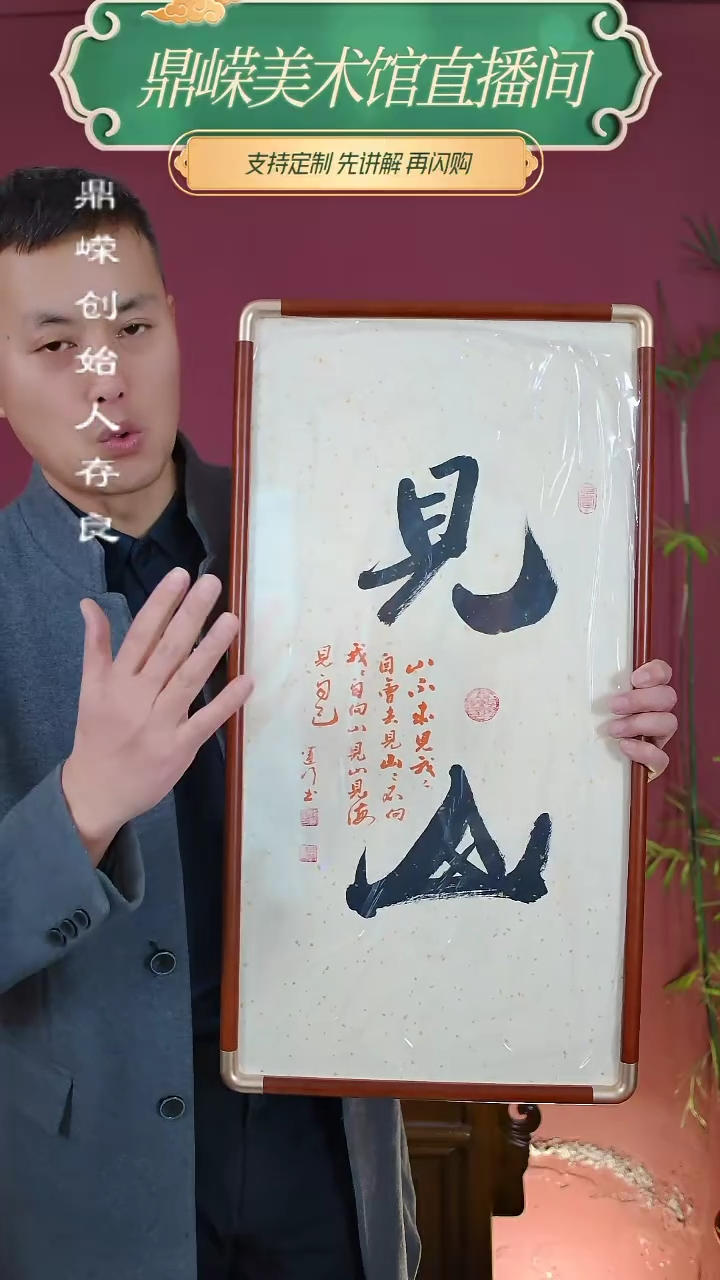 鼎嵘美术馆直播间
支持定制 先讲解 再闪购
鼎嵘创始人存良
見山
山不來見我〻
自會去見山〻不向
我〻自向山見山見海
見自己